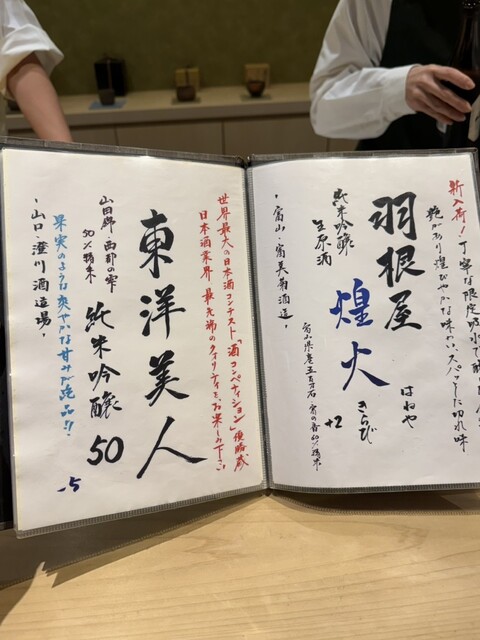 新入荷！丁寧な限定吸水で醸
艶があり煌びやかな味わい、スパッとした切れ味
羽根屋
はねや
煌火
きらび
+2
純米吟醸
生原酒
富山県産五百万石 富の香60%精米
・富山・富美菊酒造・
世界最大の日本酒コンテスト「酒コンペティション」優勝蔵
日本酒業界 最先端のクオリティをお楽しみ下さい
東洋美人
純米吟醸 50
山田錦・西都の雫
50%精米
果実のような爽やかな甘みが絶品!!
-5
・山口・澄川酒造場・